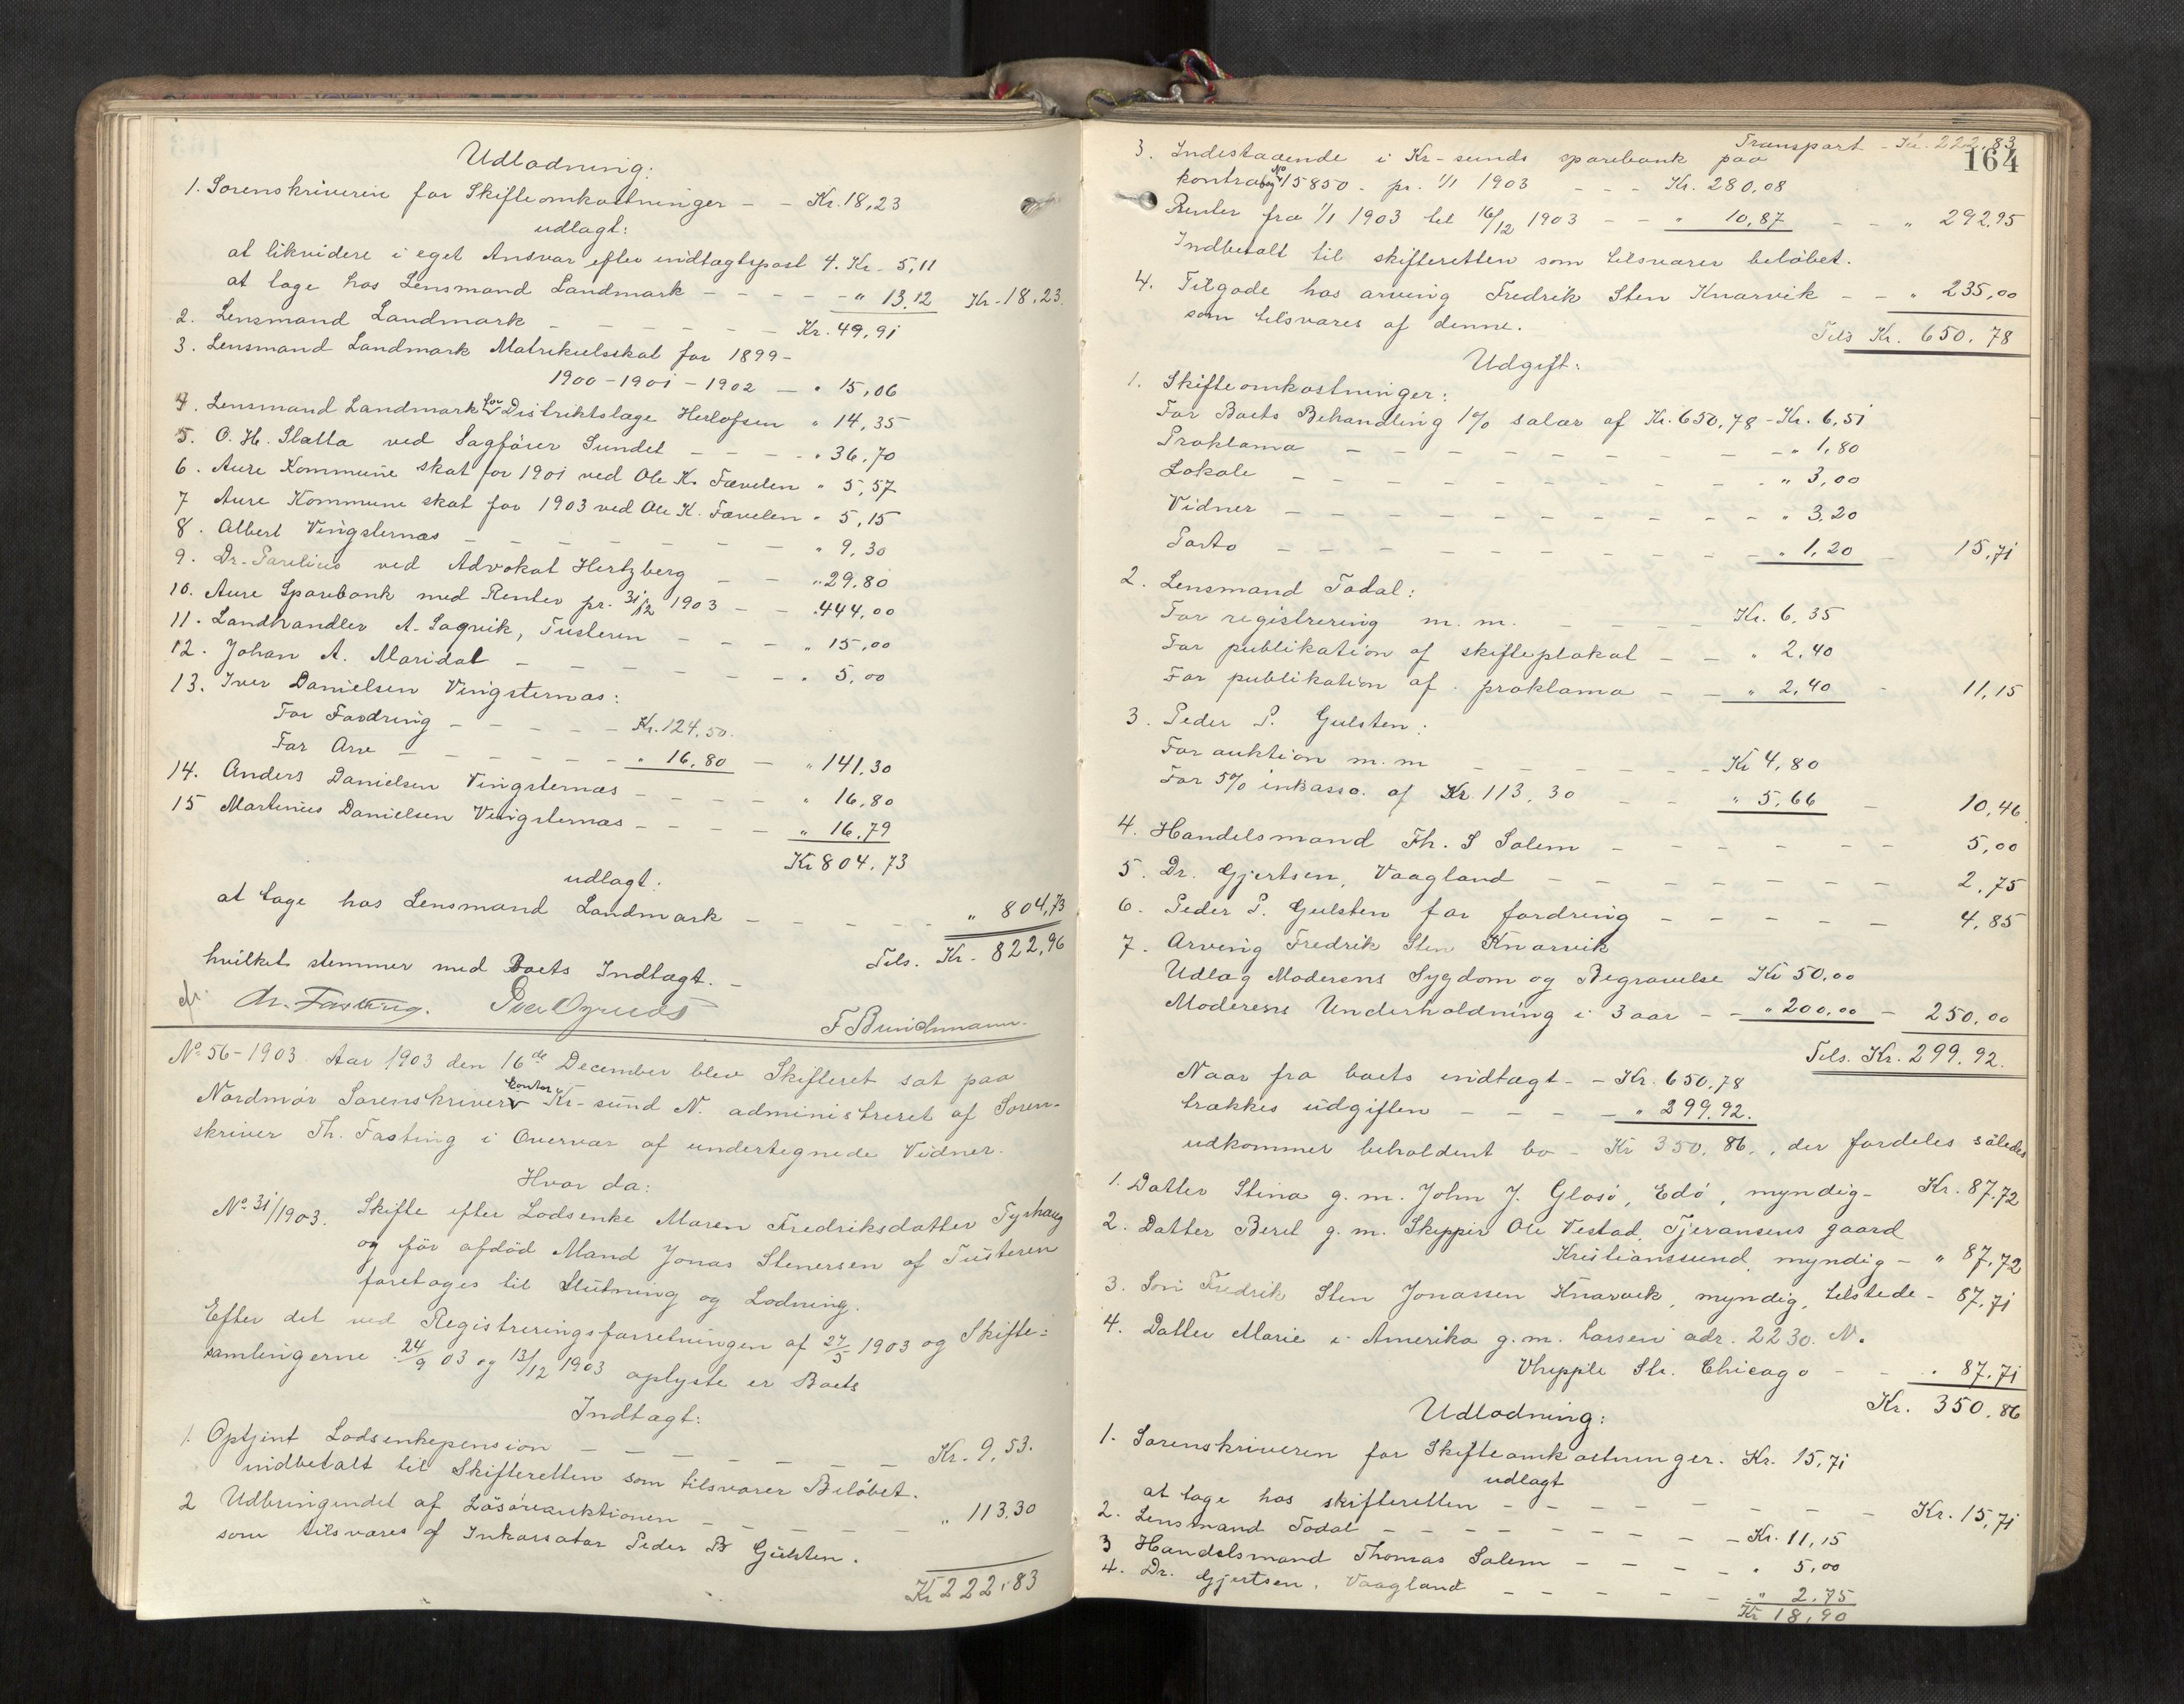 Udlodning:
1. Sorenskriveren for Skifteomkostninger - - Kr. 18,23
udlagt:
at likvidere i eget Ansvar efter indtægtspost 4. Kr. 5,11
at tage hos Lensmand Landmark - - - - - " 13.12 Kr. 18.23.
2. Lensmand Landmark - - - - - - Kr. 49,91
3. Lensmand Landmark Matrikulsskat for 1899-
1900-1901-1902 - " 15,06
4. Lensmand Landmark for Distriktslæge Herlofsen " 14,35
5. O. H. Slatta ved Sagfører Sundet - - - - " 36,70
6. Aure Kommune skat for 1901 ved Ole K. Tævelen " 5,57
7 Aure Kommune skat for 1903 ved Ole K. Tævelen " 5,15
8. Albert Vingsternæs - - - - - - - " 9,30
9. Dr. Parelius ved Advokat Hertzberg - - " 29.80
10. Aure Sparebank med Renter pr. 31/12 1903 - - " 444,00
11. Landhandler A. Sagvik, Tusteren - - - " 15,00
12. Johan A. Maridal - - - - - - - " 5,00
13. Iver Danielsen Vingsternæs:
For Fordring - - - - - Kr. 124,50.
For Arv - - - - - - " 16,80 - " 141,30
14. Anders Danielsen Vingsternæs - - - - " 16,80
15 Martinus Danielsen Vingsternæs - - - - " 16,79
Kr 804,73
udlagt:
at tage hos Lensmand Landmark - - - - " 804,73
Tils. Kr. 822,96
hvilket stemmer med Boets Indtægt. -
Th. Fasting.
F Bunichmann.
No. 56-1903. Aar 1903 den 16de December blev Skifteret sat paa
Nordmør Sorenskriver kontor Kr-sund N. administreret af Soren-
skriver Th. Fasting i Overvær af undertegnede Vidner.
Hvor da:
No. 31/1903. Skifte efter Lodsenke Maren Fredriksdatter Tyshaug
og før afdød Mand Jonas Stenersen af Tusteren
foretages til Slutning og Lodning.
Efter det ved Registreringsforretningen af 27/5 1903 og Skifte=
samlingerne 24/9 03 og 13/12 1903 oplyste er Boets
Indtægt:
1. Optjent Lodsenkepension - - - - - - Kr. 9,53.
indbetalt til Skifteretten som tilsvarer Beløbet.
2 Udbringendet af Løsøreauktionen - - - - " 113.30
som tilsvares af Inkassator Peder P. Gulsten.
Kr 222,83
164
Transport - Kr. 222.83
3. Indestaaende i Kr-sunds sparebank paa
kontrabog No 15850 - pr. 1/1 1903 - - - Kr. 280,08
Renter fra 1/1 1903 til 16/12 1903 - - " 10,87 - - " 292,95
Indbetalt til skifteretten som tilsvarer beløbet.
4. Tilgode hos arving Fredrik Sten Knarvik - - " 235,00
som tilsvares af denne.
Tils Kr. 650.78
Udgift:
1. Skifteomkostninger:
For Boets Behandling 1% salær af Kr. 650,78 - Kr. 6,51
Proklama - - - - - - - - - " 1,80
Lokale - - - - - - - - - " 3,00
Vidner - - - - - - - - - " 3,20
Porto - - - - - - - - - " 1,20 - 15,71
2. Lensmand Todal:
For registrering m. m. - - - - Kr. 6,35
For publikation af skifteplakat - - " 2,40
For publikation af proklama - - " 2,40 - 11,15
3. Peder P. Gulsten:
For auktion m. m - - - - - - Kr 4,80
For 5% inkasso. af Kr. 113,30 - - " 5,66 - 10,46.
4. Handelsmand Th. S Solem - - - - - - 5,00
5. Dr. Gjertsen, Vaagland - - - - - - - 2,75
6. Peder P. Gulsten for fordring - - - - - 4,85
7. Arving Fredrik Sten Knarvik
Udlæg Moderens Sygdom og Begravelse Kr 50,00
Moderens Underholdning i 3 aar - - " 200,00 - 250,00
Tils. Kr. 299.92.
Naar fra boets indtægt - - Kr. 650,78
trækkes udgiften - - - - " 299.92.
udkommer beholdent bo - Kr 350,86., der fordeles således
1. Datter Stina g. m. John J. Glasø, Edø, myndig - Kr. 87,72
2. Datter Beret g. m. Skipper Ole Vestad, Tjeransens gaard
Kristianssund, myndig - " 87,72
3. Søn Fredrik Sten Jonassen Knarvik, myndig, tilstede - 87,71
4. Datter Marie i Amerika g. m. Larsen adr. 2230. N.
Vhepple Str. Chicago - - " 87,71
Kr. 350,86
Udlodning:
1. Sorenskriveren for Skifteomkostninger. Kr. 15,71
udlagt
at tage hos skifteretten - - - - - - - - Kr. 15,71
2. Lensmand Todal - - - - - - - - Kr. 11,15
3 Handelsmand Thomas Solem - - - - " 5,00
4. Dr. Gjertsen, Vaagland - - - - - " 2.75
Kr 18,90